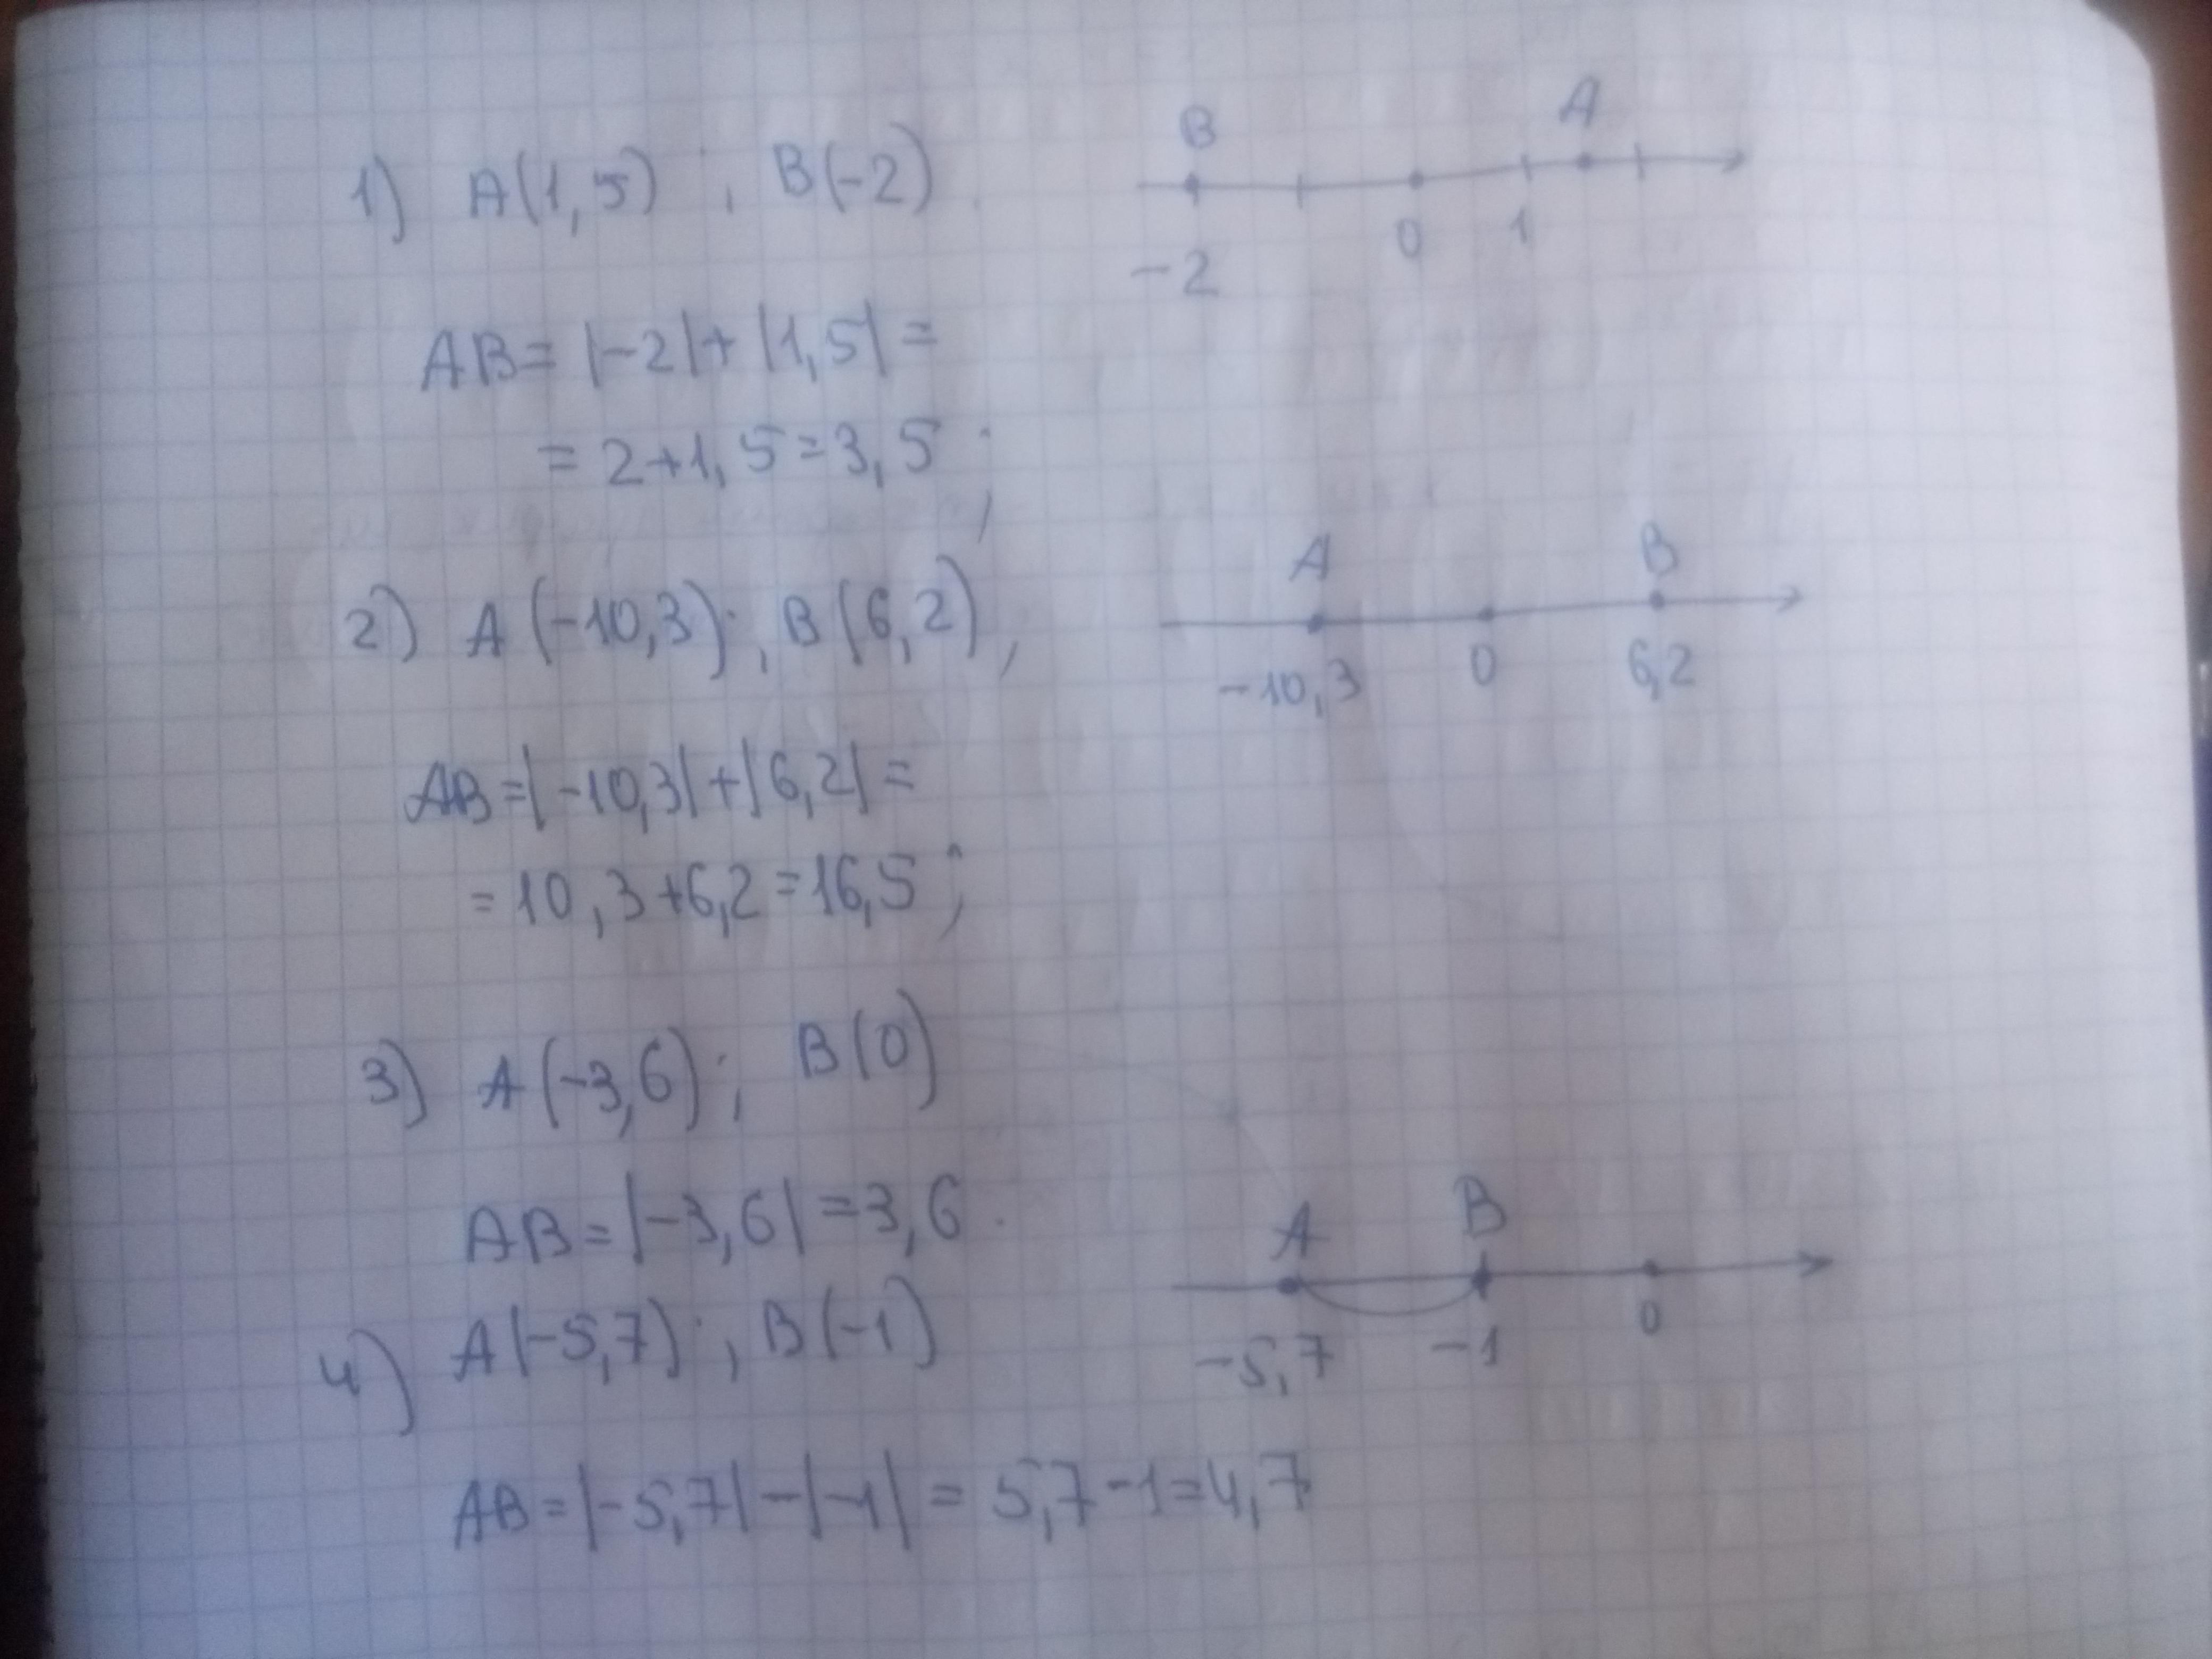 1) A(1,5) ; B(-2)
B A
-2 0 1
AB = |-2| + |1,5| =
= 2+1,5=3,5 ;
2) A (-10,3) ; B(6,2) ,
A B
-10,3 0 6,2
AB=|-10,3|+|6,2| =
= 10,3+6,2=16,5 ;
3) A (-3,6) ; B(0)
AB = |-3,6| =3,6 .
4) A(-5,7) ; B(-1)
A B
-5,7 -1 0
AB = |-5,7| - |-1| = 5,7-1=4,7